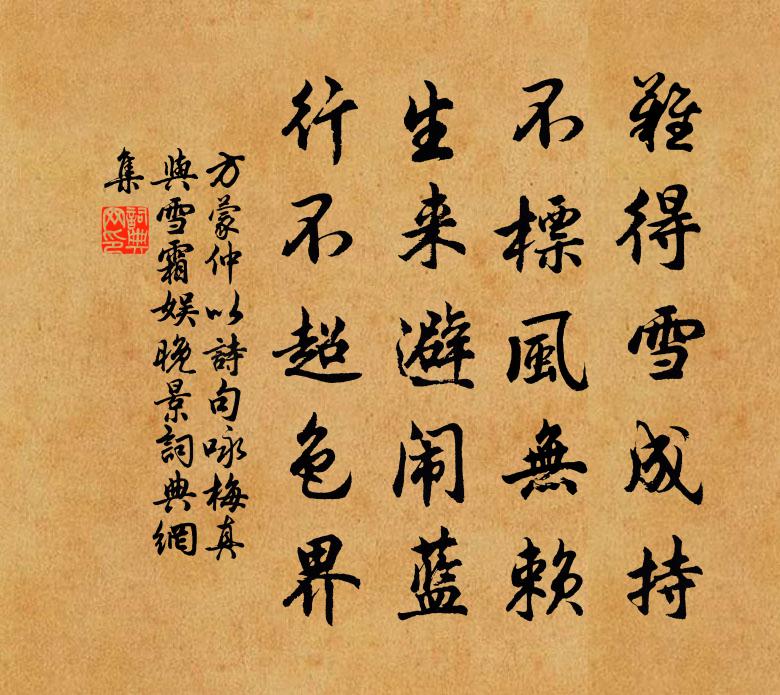 難得雪成持
不標風無賴
生来避闹藍
行不超色界
方蒙仲以詩句咏梅真
與雪霜娱晚景詞典網
集
詞典網印